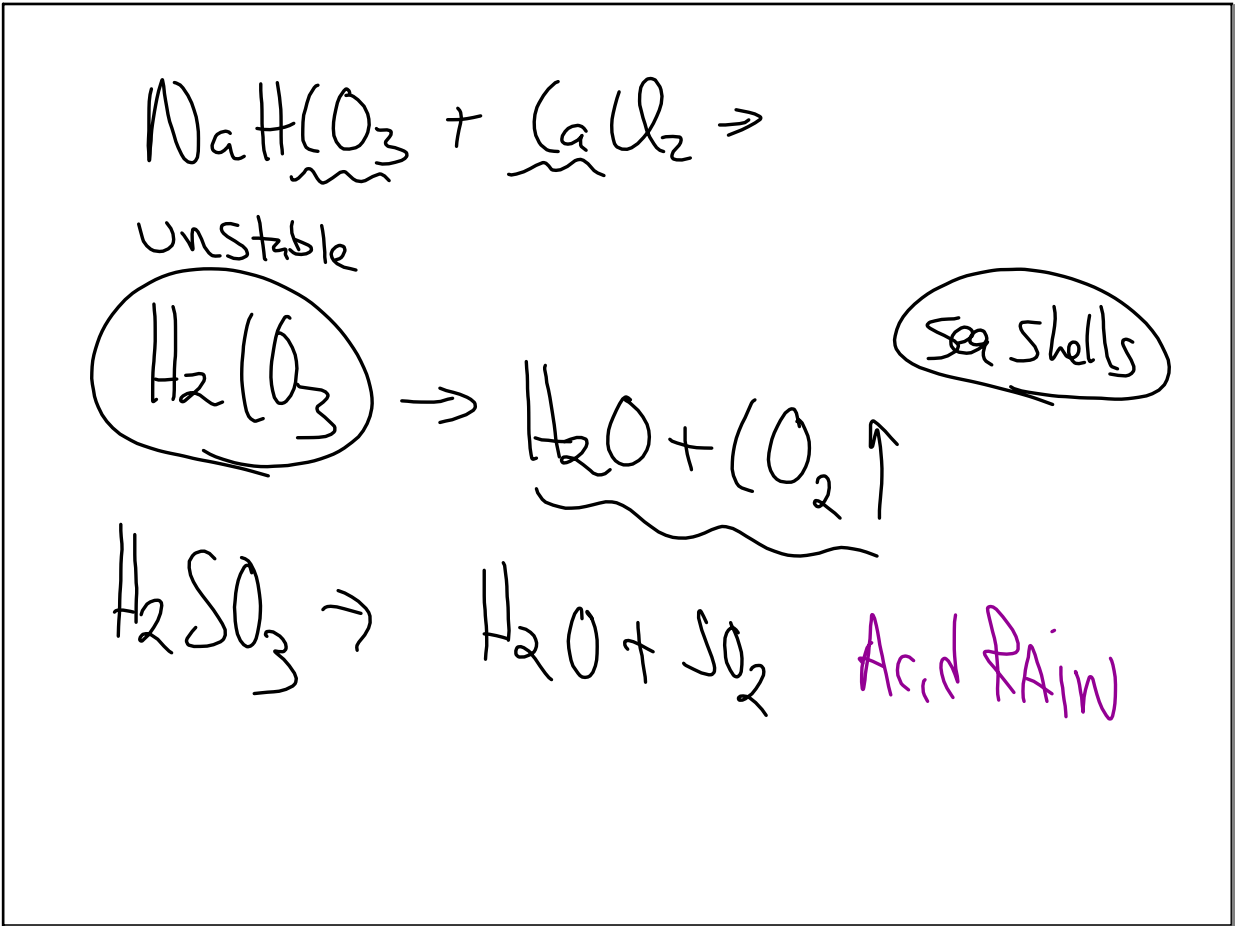 NaHCO₃ + CaCl₂ →
unstable
H₂CO₃ → H₂O + CO₂ ↑
sea shells
H₂SO₃ → H₂O + SO₂ Acid RAiN